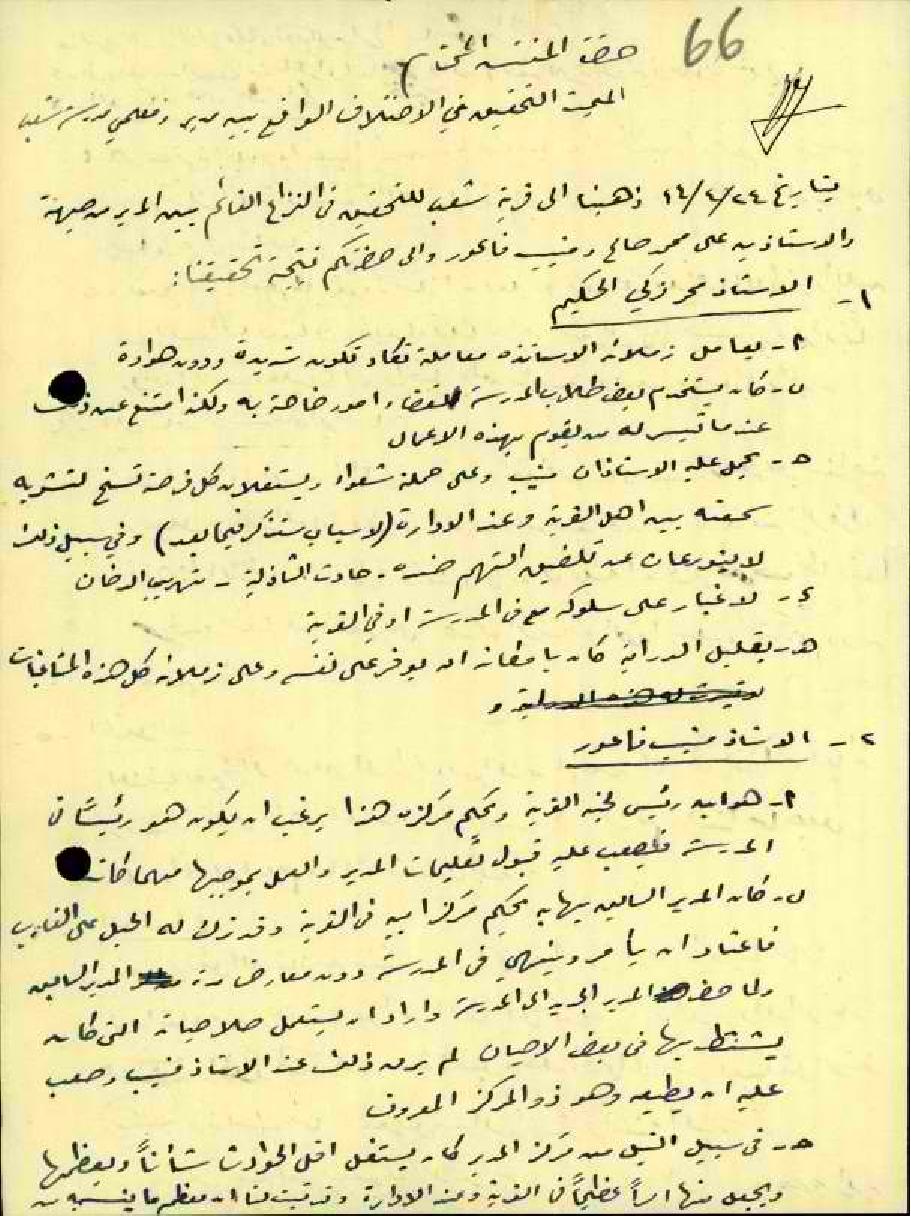 66
حضرة المفتش المحترم
الموضوع: التحقيق في الاختلاف الواقع بين مدير ومعلمي مدرسة شعب
بتاريخ ٢٤/٤/١٤ ذهبنا الى قرية شعب للتحقيق في النزاع القائم بين المدير من جهة
والاستاذين علي محمد صالح ومنيب فاعور والى حضرتكم نتيجة تحقيقنا:
١- الاستاذ محمد زكي الحكيم
أ- يعامل زملائه الاساتذه معاملة تكاد تكون شديدة ودون هوادة
ب- كان يستخدم بعض طلاب المدرسة لقضاء امور خاصة به ولكنه امتنع عن ذلك
عندما تيسر له من يقوم بهذه الاعمال
ج- يحمل عليه الاستاذان منيب وعلي حملة شعواء ويستغلان كل فرصة تسنح لتشويه
سمعته بين اهل القرية وعند الادارة (لاسباب ستذكر فيما بعد) وفي سبيل ذلك
لا يتورعان عن تلفيق التهم ضده - حادث الشاذلية - تهريب الدخان
د- لا غبار على سلوكه في المدرسة او في القرية
هـ- بقليل الدراية كان بامكانه ان يوفر على نفسه وعلى زملائه كل هذه المشاغبات
و
٢- الاستاذ منيب فاعور
أ- هو ابن رئيس لجنة القرية وبحكم مركزه هذا يرغب ان يكون هو رئيسًا في
المدرسة فيصعب عليه قبول تعليمات المدير والعمل بموجبها مهما كانت
ب- كان المدير السابق يهابه بحكم مركز ابيه في القرية وقد ترك له الحبل على الغارب
فاعتاد ان يأمر وينهي في المدرسة دون معارضة من المدير السابق
ولما حضر المدير الجديد الى المدرسة واراد ان يستعمل صلاحياته التي كان
يشتط بها في بعض الاحيان لم يرق ذلك عند الاستاذ منيب وصعب
عليه ان يطيعه وهو ذو المركز المعروف
ج- في سبيل النيل من مركز المدير كان يستغل اقل الحوادث شأناً ويعظمها
ويجعل منها امراً عظيماً في القرية وعند الادارة وقد ثبت لنا ان معظم ما ينسبه